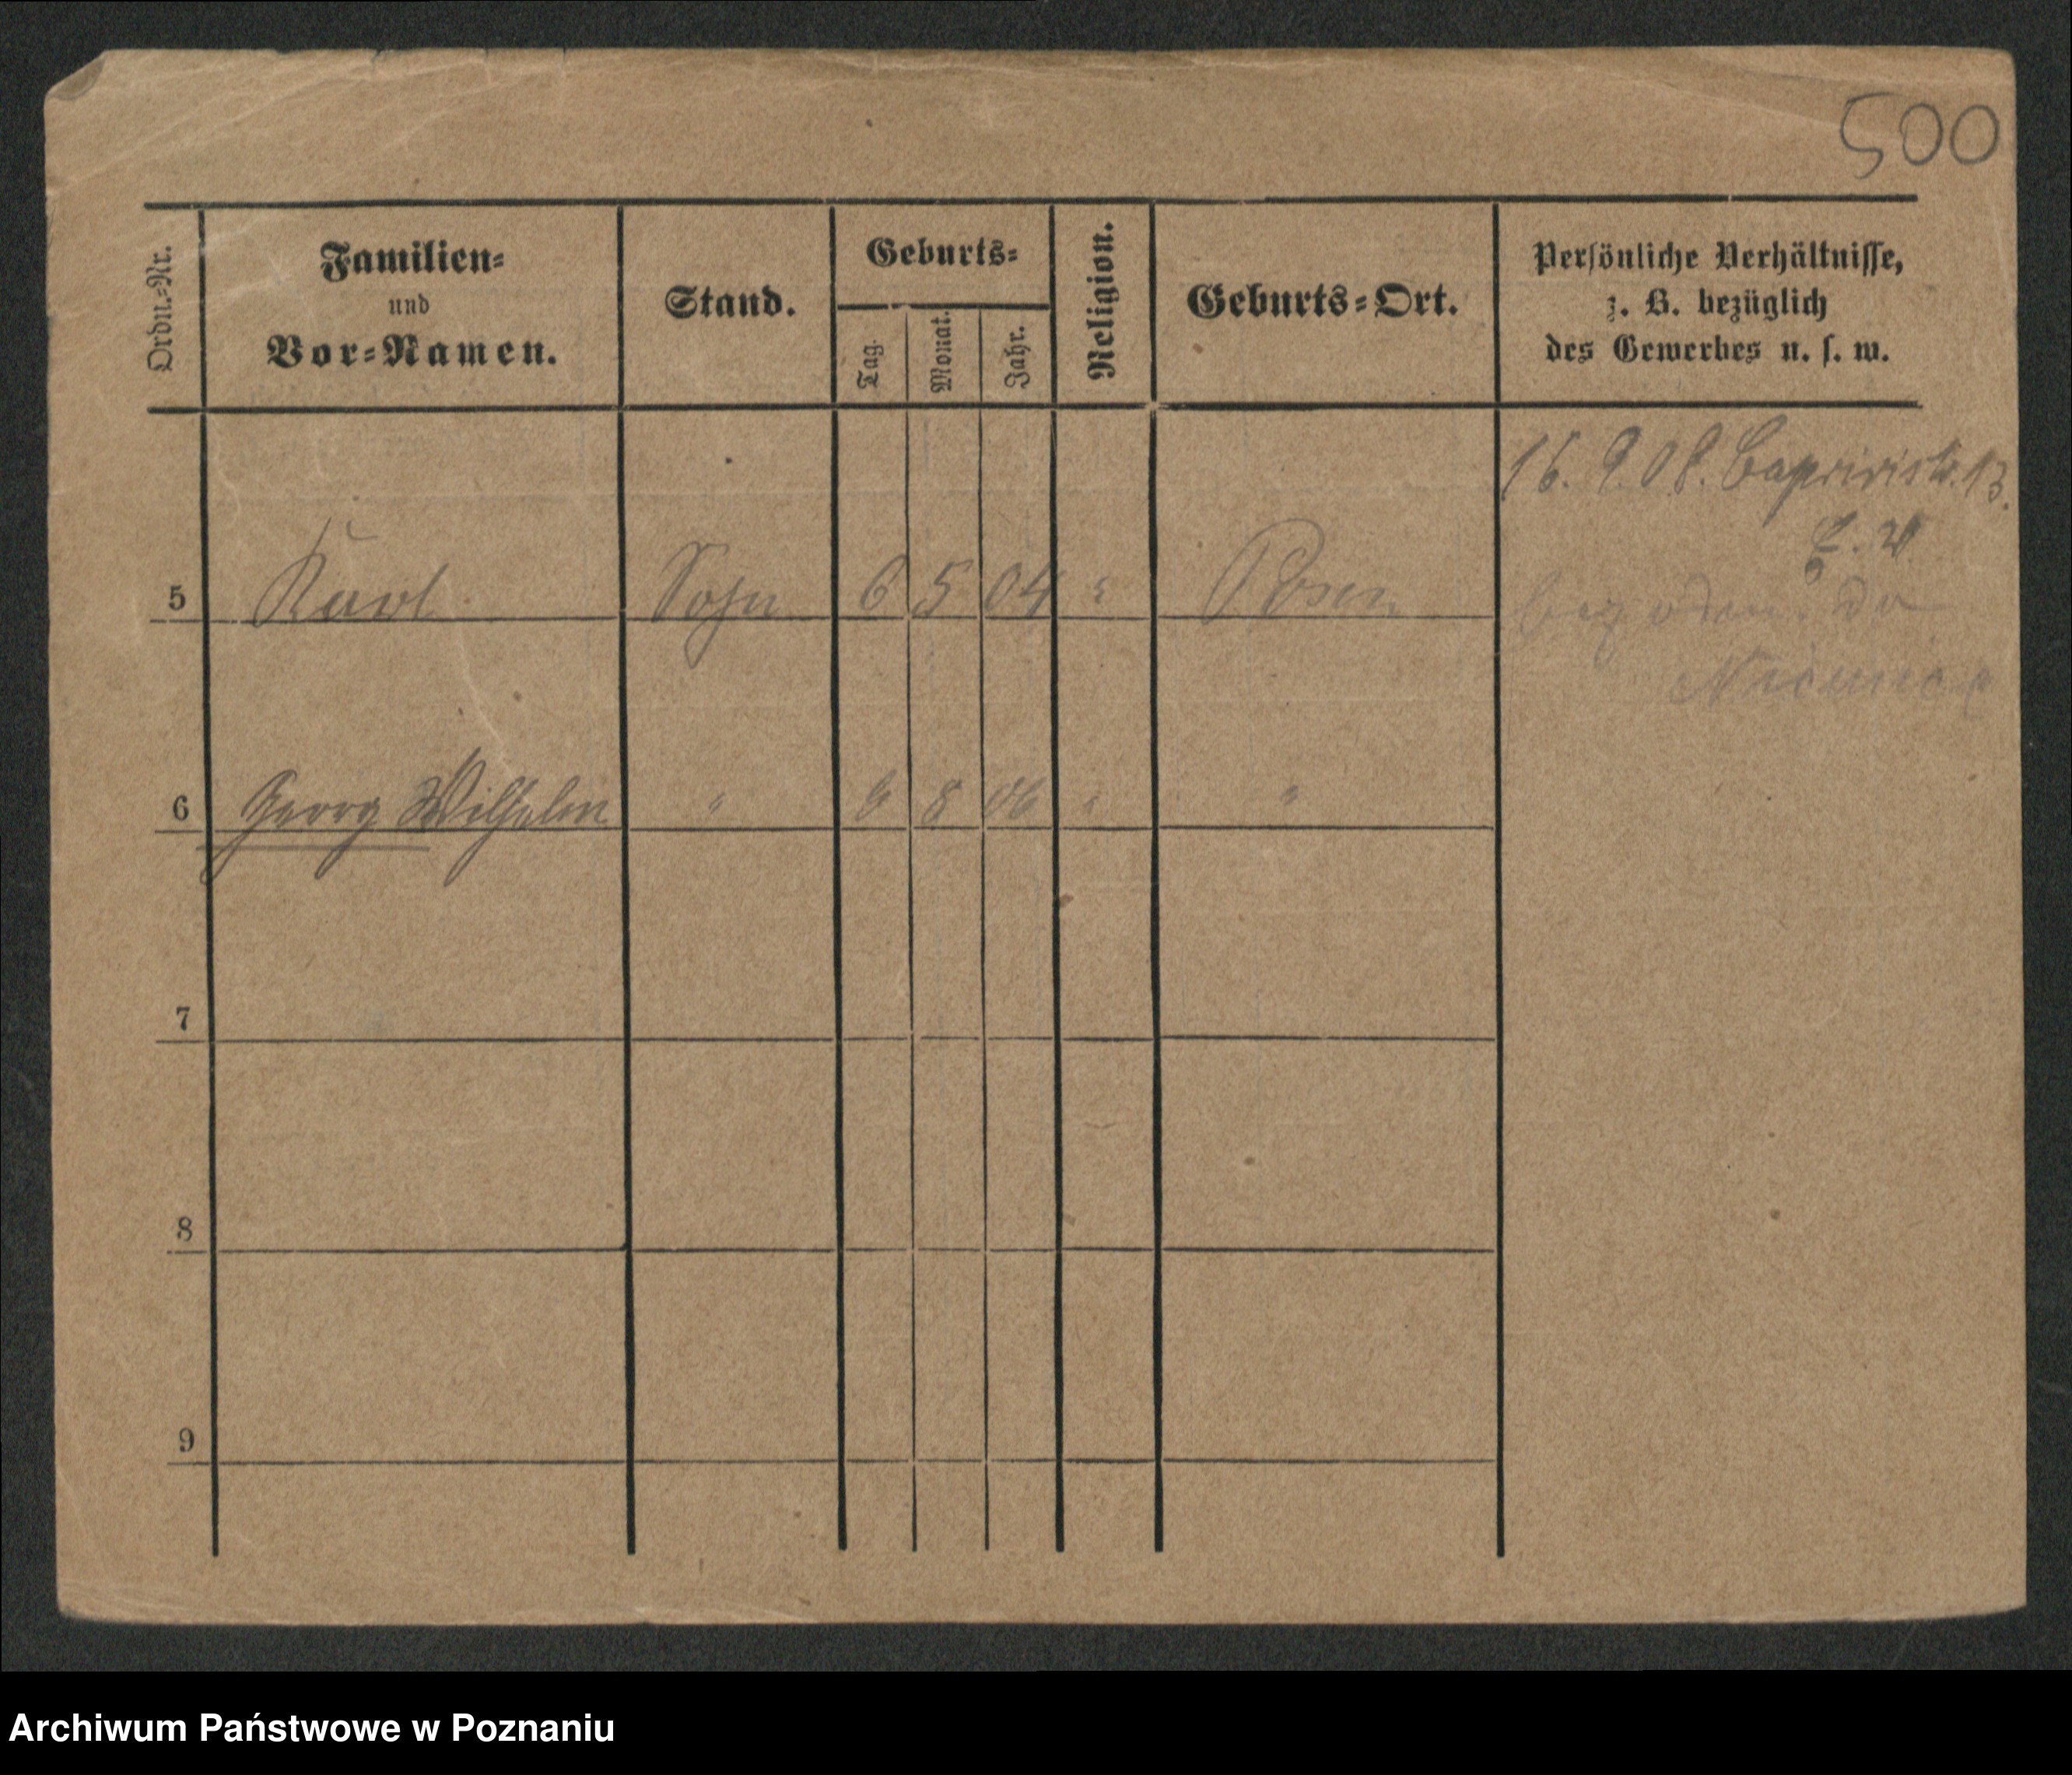 500
Ordn.-Nr.
Familien-
und
Vor-Namen.
Stand.
Geburts-
Tag.
Monat.
Jahr.
Religion.
Geburts-Ort.
Persönliche Verhältnisse,
z. B. bezüglich
des Gewerbes u. s. w.
16. 9. 08. Caprivistr. 13.
5 Karl Sohn 6 5 04 " Posen
do
Niemiec
6 Georg Wilhelm " 8 06 " "
7
8
9
Archiwum Państwowe w Poznaniu